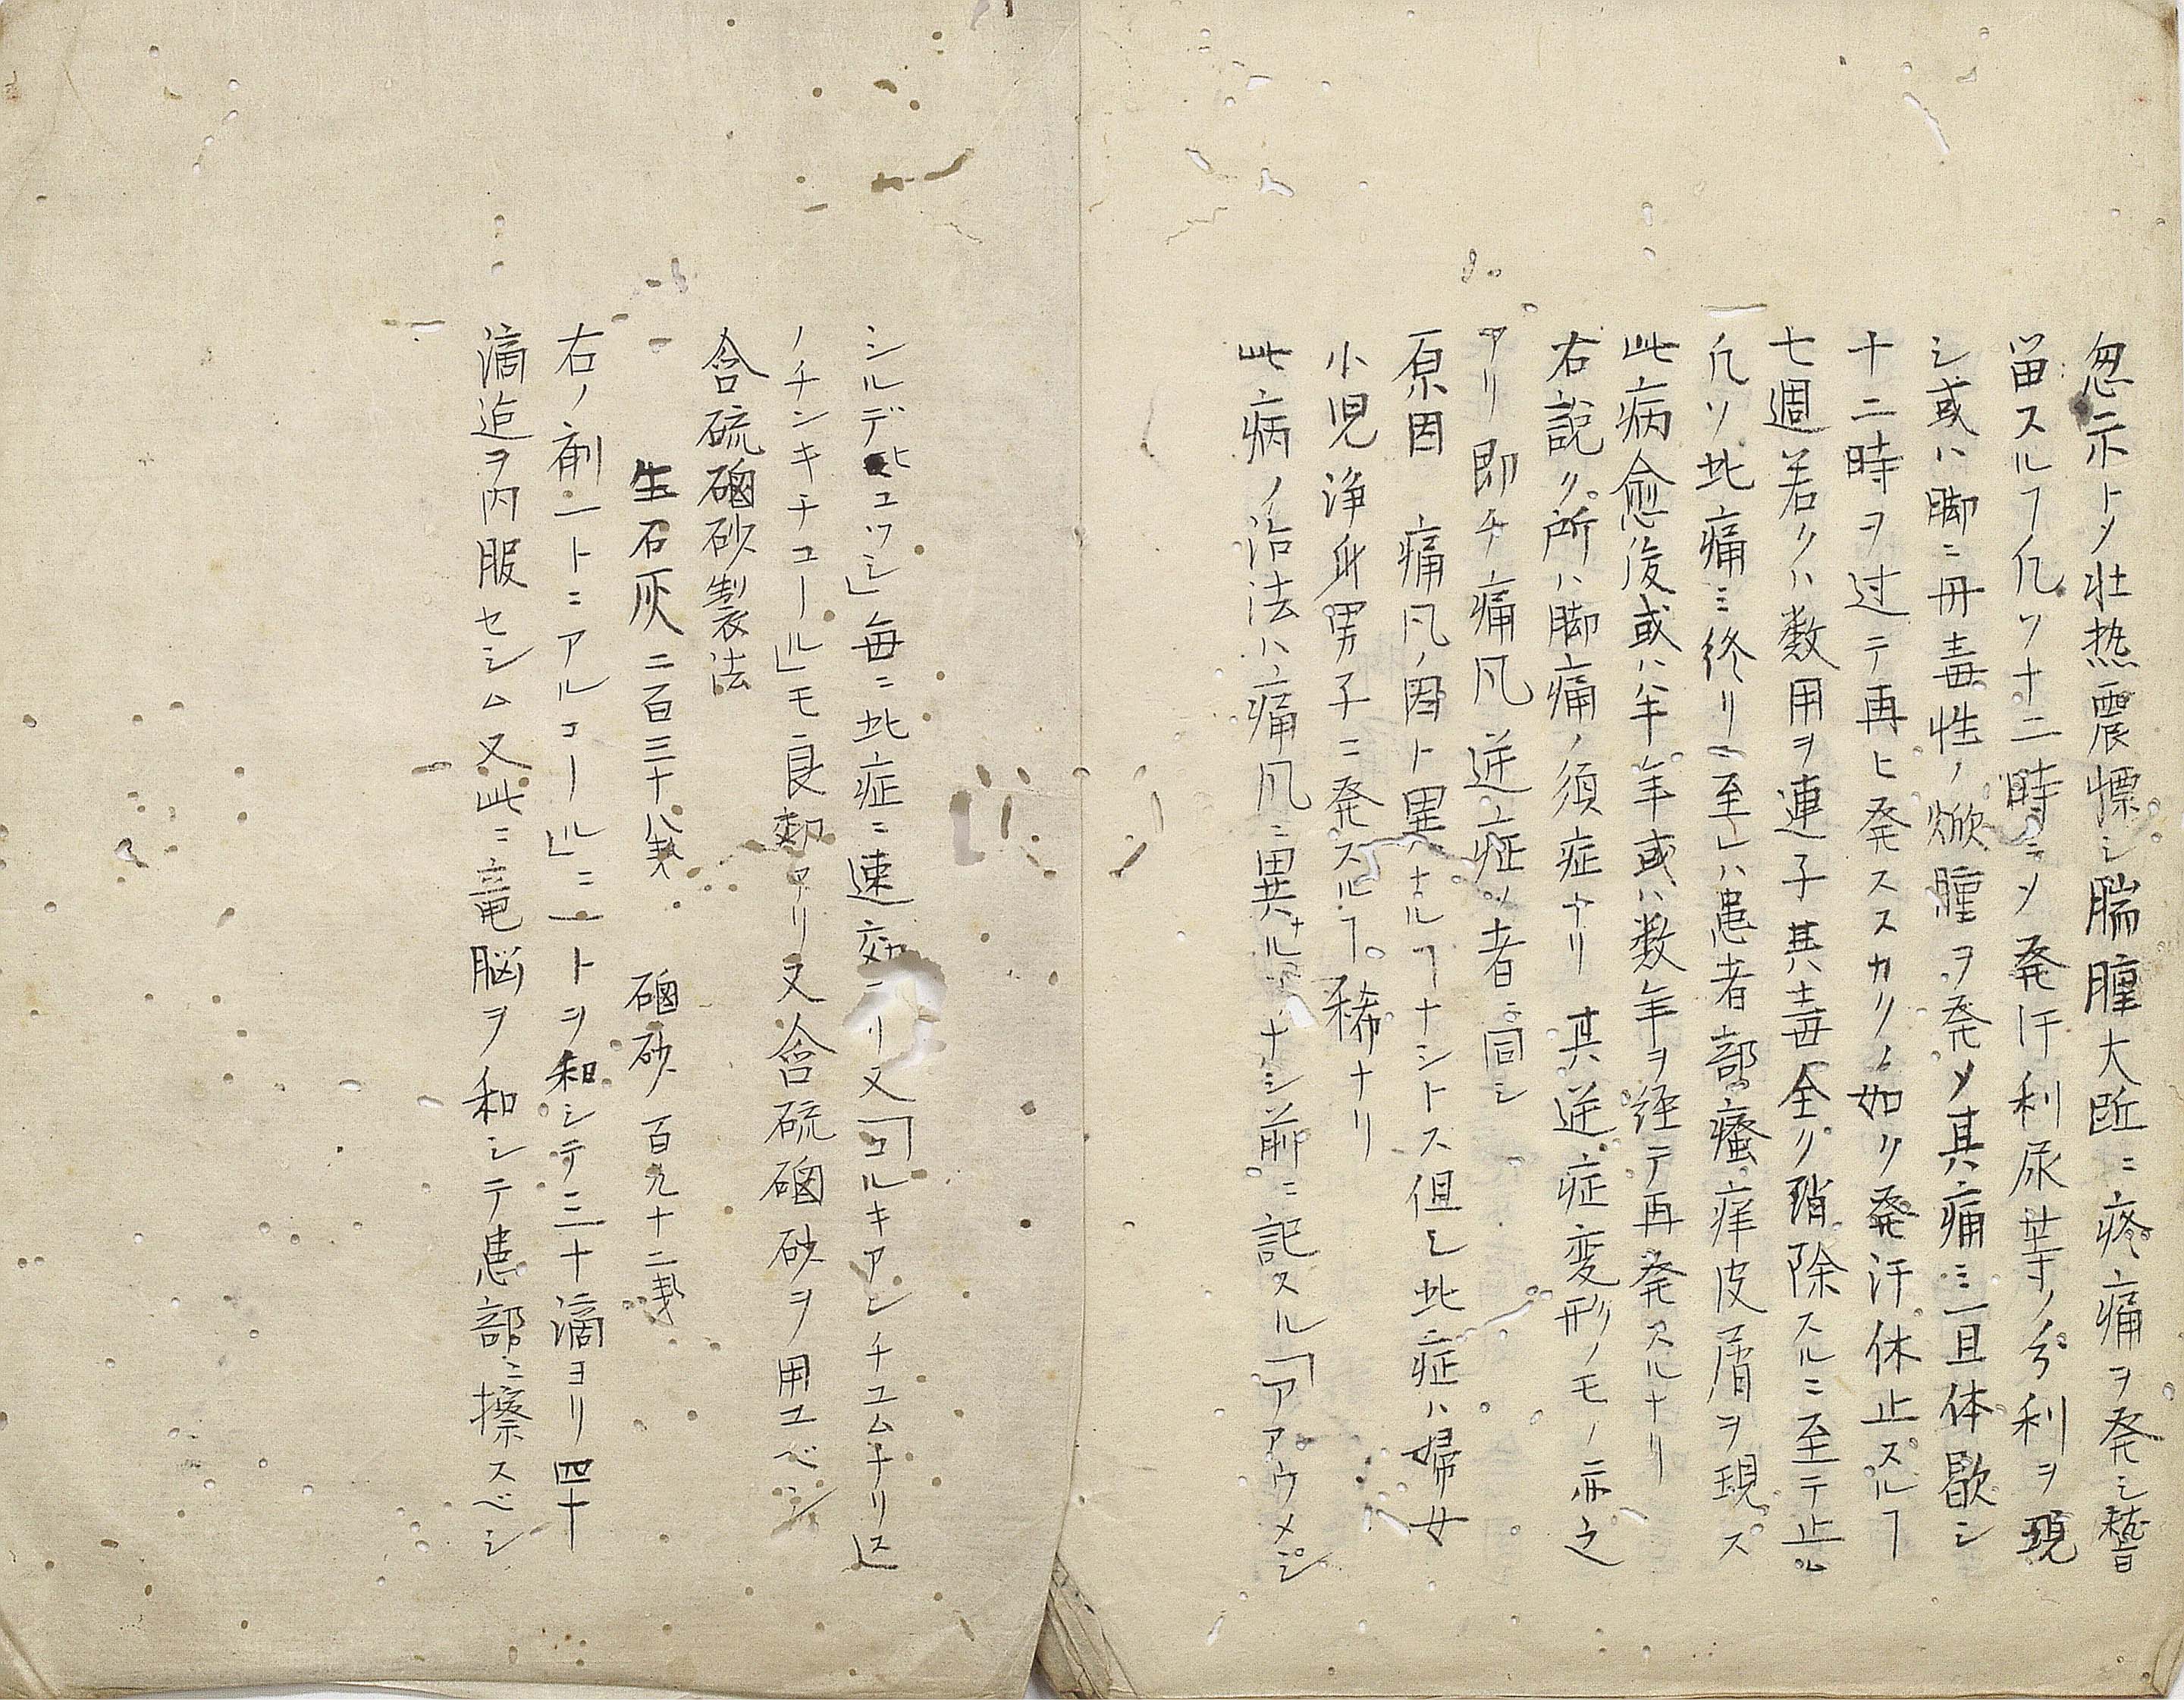 忽示トメ壮熱震慄シ腨腫大近ニ疼痛ヲ発シ稽
畄スルヿ凡ソ十二時ニメ発汗利尿等ノ分利ヲ現
シ或ハ脚ニ丹毒性ノ焮腫ヲ発メ其痛ミ一旦休歇シ
十二時ヲ过テ再ヒ発ススカリノ如ク発汗休止スルヿ
七週若クハ数用ヲ連子其毒全ク消除スルニ至テ止ル
凡ソ此痛ミ終リニ至レハ患者部瘙痒皮屑ヲ現ス
此病愈後或ハ半年或ハ数年ヲ経テ再発スルナリ
右説ク所ハ脚痛ノ須症ナリ 其逆症変形ノモノ亦之
アリ即チ痛風逆症ノ者ニ同シ
原因 痛風ノ因ト異ナルヿナシトス但シ此症ハ婦女
小児浄身男子ニ発スルヿ稀ナリ
此病ノ治法ハ痛風ニ異ナルヿナシ前ニ記スル「アアウメン
シルデヒユツシ」毎ニ此症ニ速効アリ又「コルキアンチユムナリス」
ノチンキチユール」モ良効アリ又含硫硇砂ヲ用ユベシ
含硫硇砂製法
生石灰 二百三十八戔 硇砂 百九十二戔
右ノ剤一トニアルコール」ニ一トヲ和シテ三十滴ヨリ四十
滴迄ヲ内服セシム又此ニ竜脳ヲ和シテ患部ニ擦スベシ